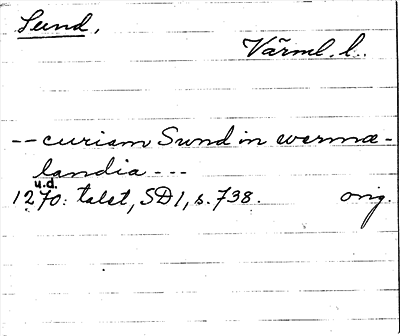 Sund,
Värml. l.
-- curiam Swnd in wermæ-
landia ---
u.d.
1270: talet, SD1, s. 738. orig.